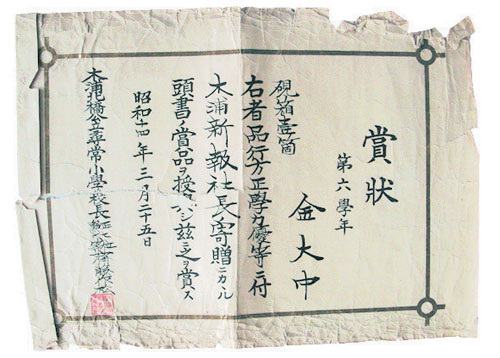 賞狀
第六學年
金大中
硯箱壹箇
右者品行方正學力優等ニ付
木浦新報社長寄贈ニカヽル
頭書ノ賞品ヲ授ケ茲ニ之ヲ賞ス
昭和十四年三月二十五日
木浦北橋公立尋常小學校長